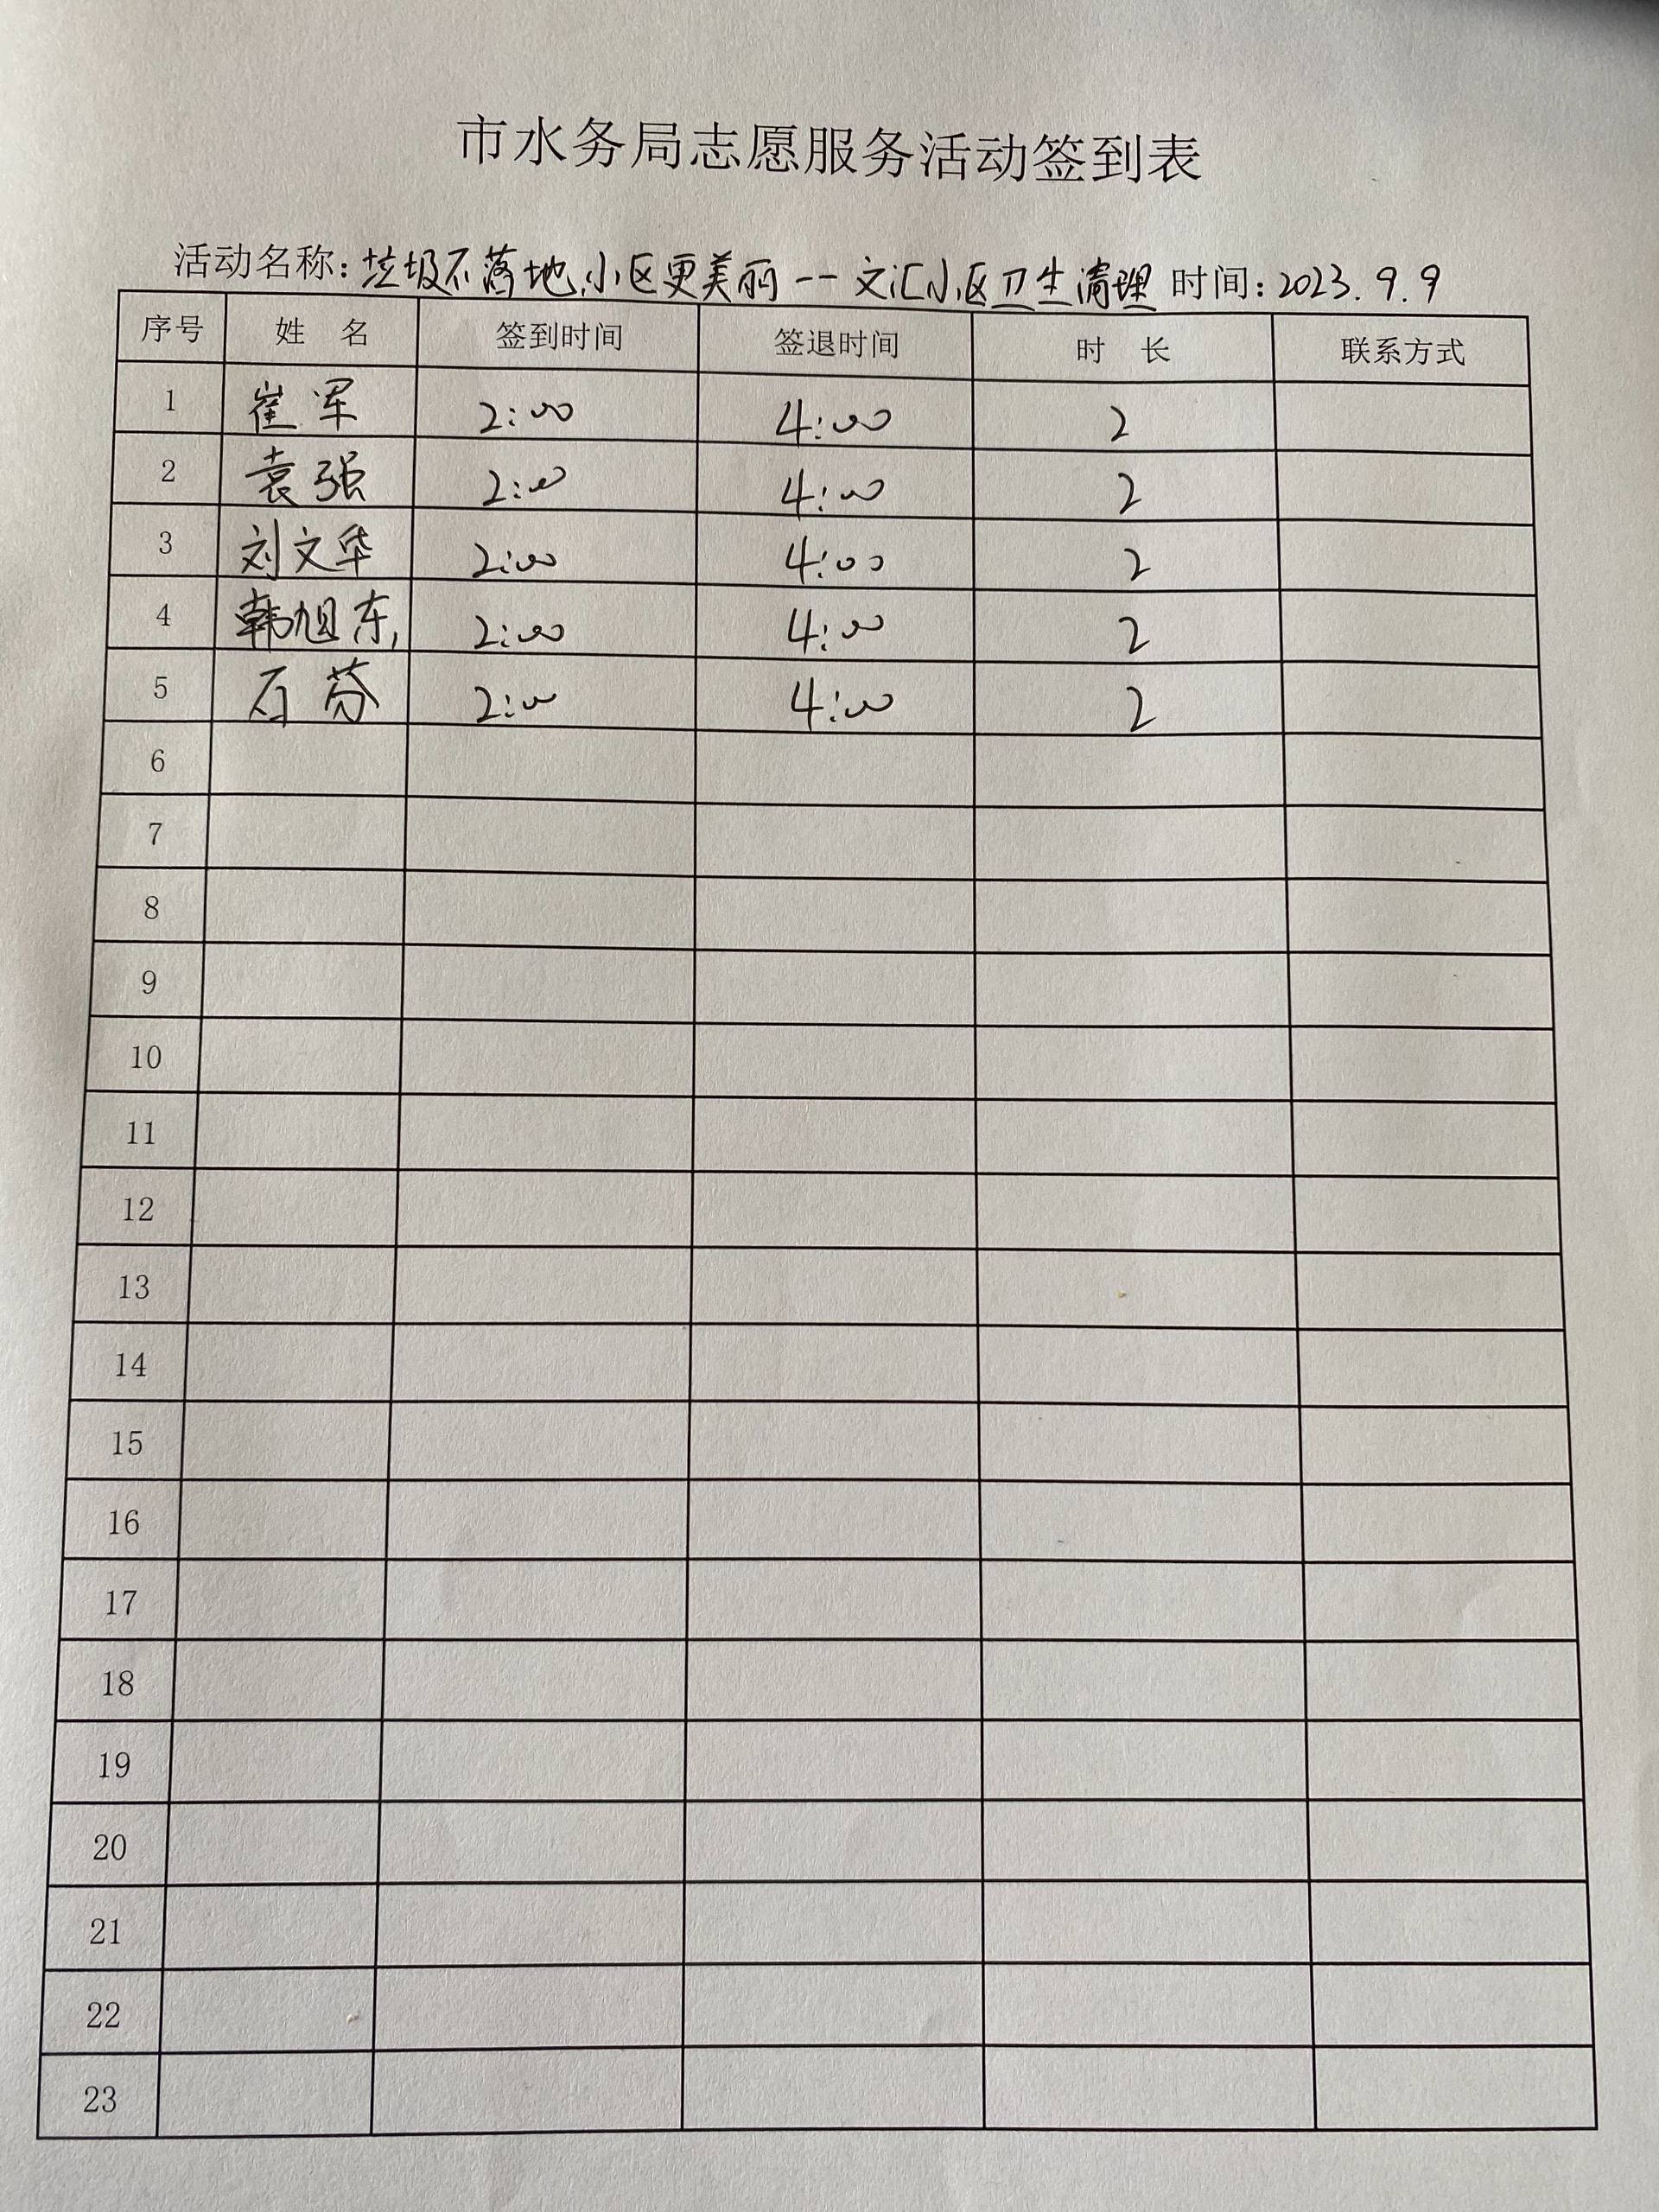 市水务局志愿服务活动签到表
活动名称:垃圾不落地,小区更美丽--文汇小区卫生清理 时间:2023.9.9
序号 姓 名 签到时间 签退时间 时 长 联系方式
1 崔军 2:00 4:00 2
2 袁强 2:00 4:00 2
3 刘文华 2:00 4:00 2
4 韩旭东, 2:00 4:00 2
5 石芬 2:00 4:00 2
6
7
8
9
10
11
12
13
14
15
16
17
18
19
20
21
22
23